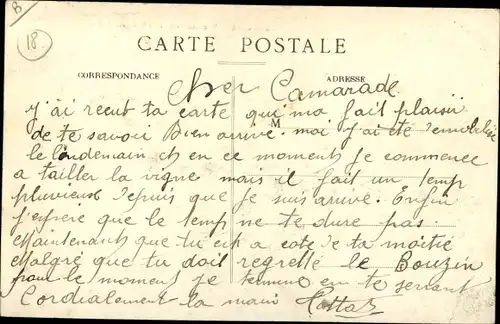 B
18
CARTE POSTALE
CORRESPONDANCE
ADRESSE
Cher Camarade
M
j'ai recut ta carte qui ma fait plaisir
de te savoir Bien arrivé. moi j'ai été demobilisé
le lendemain et en ce moment je commence
a tailler la vigne mais il fait un temp
pluvieux depuis que je suis arrivé. Enfin
j'espere que le temp ne te dure pas.
Maintenant que tu est a cote de ta moitié
Malgré que tu doit regretté le Bouzin
pour le moment je termine en te serrant
Cordialement la main